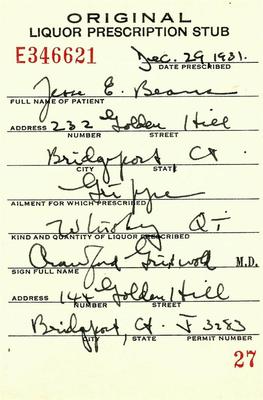 ORIGINAL
LIQUOR PRESCRIPTION STUB
E346621 Dec. 29 1931.
DATE PRESCRIBED
Jesse E. Beans
FULL NAME OF PATIENT
ADDRESS 232 Golden Hill
NUMBER STREET
Bridgeport Ct
CITY STATE
Grippe
AILMENT FOR WHICH PRESCRIBED
Whiskey QT
KIND AND QUANTITY OF LIQUOR PRESCRIBED
Crawford Griswold M.D.
SIGN FULL NAME
ADDRESS 144 Golden Hill
NUMBER STREET
Bridgeport, Ct. 3283
CITY, STATE PERMIT NUMBER
27